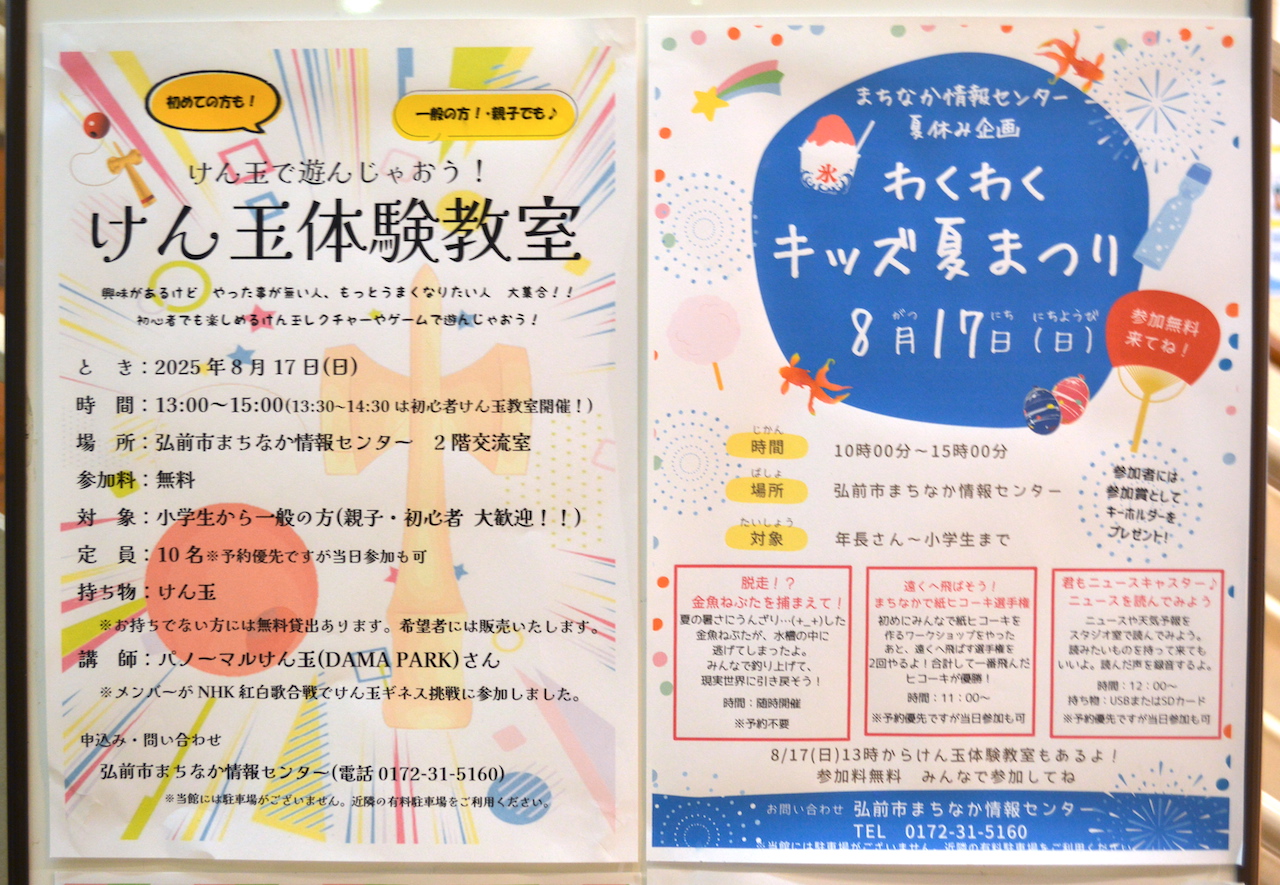 初めての方も!
一般の方!・親子でも♪
けん玉で遊んじゃおう!
けん玉体験教室
興味があるけど やった事が無い人、もっとうまくなりたい人 大集合!!
初心者でも楽しめるけん玉レクチャーやゲームで遊んじゃおう!
と き:2025年8月17日(日)
時 間:13:00~15:00(13:30~14:30は初心者けん玉教室開催!)
場 所:弘前市まちなか情報センター 2階交流室
参加料:無料
対 象:小学生から一般の方(親子・初心者 大歓迎!!)
定 員:10名※予約優先ですが当日参加も可
持ち物:けん玉
※お持ちでない方には無料貸出あります。希望者には販売いたします。
講 師:パノーマルけん玉(DAMA PARK)さん
※メンバーがNHK紅白歌合戦でけん玉ギネス挑戦に参加しました。
申込み・問い合わせ
弘前市まちなか情報センター(電話0172-31-5160)
※当館には駐車場がございません。近隣の有料駐車場をご利用ください。
まちなか情報センター
夏休み企画
氷
わくわく
キッズ夏まつり
がつ にち にちようび
8月17日(日)
参加無料
来てね!
じかん
時間 10時00分~15時00分
ばしょ
場所 弘前市まちなか情報センター
たいしょう
対象 年長さん~小学生まで
参加者には
参加賞として
キーホルダーを
プレゼント!
脱走!?
金魚ねぷたを捕まえて!
夏の暑さにうんざり…(+_+)した
金魚ねぷたが、水槽の中に
逃げてしまったよ。
みんなで釣り上げて、
現実世界に引き戻そう!
時間:随時開催
※予約不要
遠くへ飛ばそう!
まちなかで紙ヒコーキ選手権
初めにみんなで紙ヒコーキを
作るワークショップをやった
あと、遠くへ飛ばす選手権を
2回やるよ!合計して一番飛んだ
ヒコーキが優勝!
時間:11:00~
※予約優先ですが当日参加も可
君もニュースキャスター♪
ニュースを読んでみよう
ニュースや天気予報を
スタジオ室で読んでみよう。
読みたいものを持って来ても
いいよ。読んだ声を録音するよ。
時間:12:00~
持ち物:USBまたはSDカード
※予約優先ですが当日参加も可
8/17(日)13時からけん玉体験教室もあるよ!
参加料無料 みんなで参加してね
お問い合わせ 弘前市まちなか情報センター
TEL 0172-31-5160
※当館には駐車場がございません。近隣の有料駐車場をご利用ください。